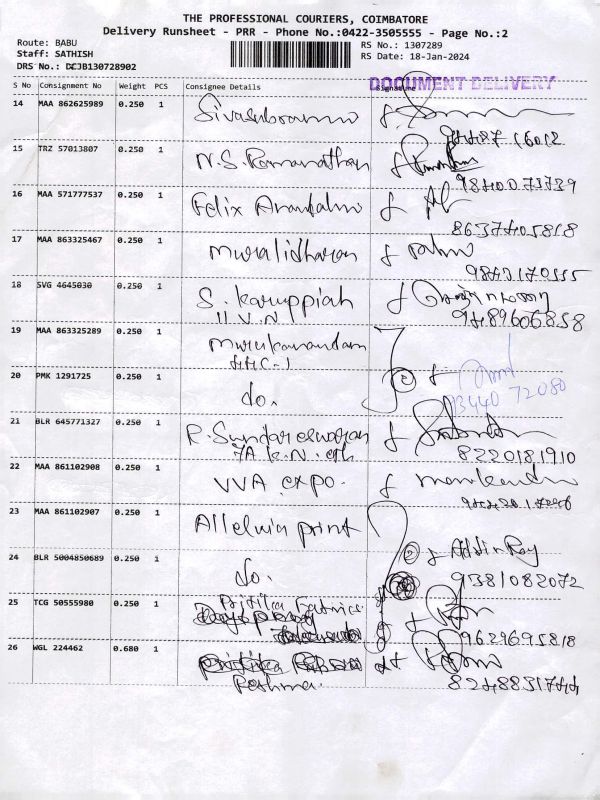 THE PROFESSIONAL COURIERS, COIMBATORE
Delivery Runsheet - PRR - Phone No.:0422-3505555 - Page No.:2
Route: BABU
Staff: SATHISH
DRS No.: DCJB130728902
RS No.: 1307289
RS Date: 18-Jan-2024
DOCUMENT DELIVERY
S No Consignment No Weight PCS Consignee Details Signature
14 MAA 862625989 0.250 1
15 TRZ 57013807 0.250 1 N.S. Ramanathan
9840073739
16 MAA 571777537 0.250 1 Felix
8637405818
17 MAA 863325467 0.250 1 Muralidharan
18 SVG 4645030 0.250 1 S. Karuppiah
9489606858
19 MAA 863325289 0.250 1 Murukanandam
20 PMK 1291725 0.250 1 do.
93440 72080
21 BLR 645771327 0.250 1 R. Sundareswaran
8220181910
22 MAA 861102908 0.250 1 VVA expo.
23 MAA 861102907 0.250 1 Alleluia print
24 BLR 5004850689 0.250 1 do.
9381082072
25 TCG 50555980 0.250 1
9629695818
26 WGL 224462 0.680 1
Reshma.
8248831744